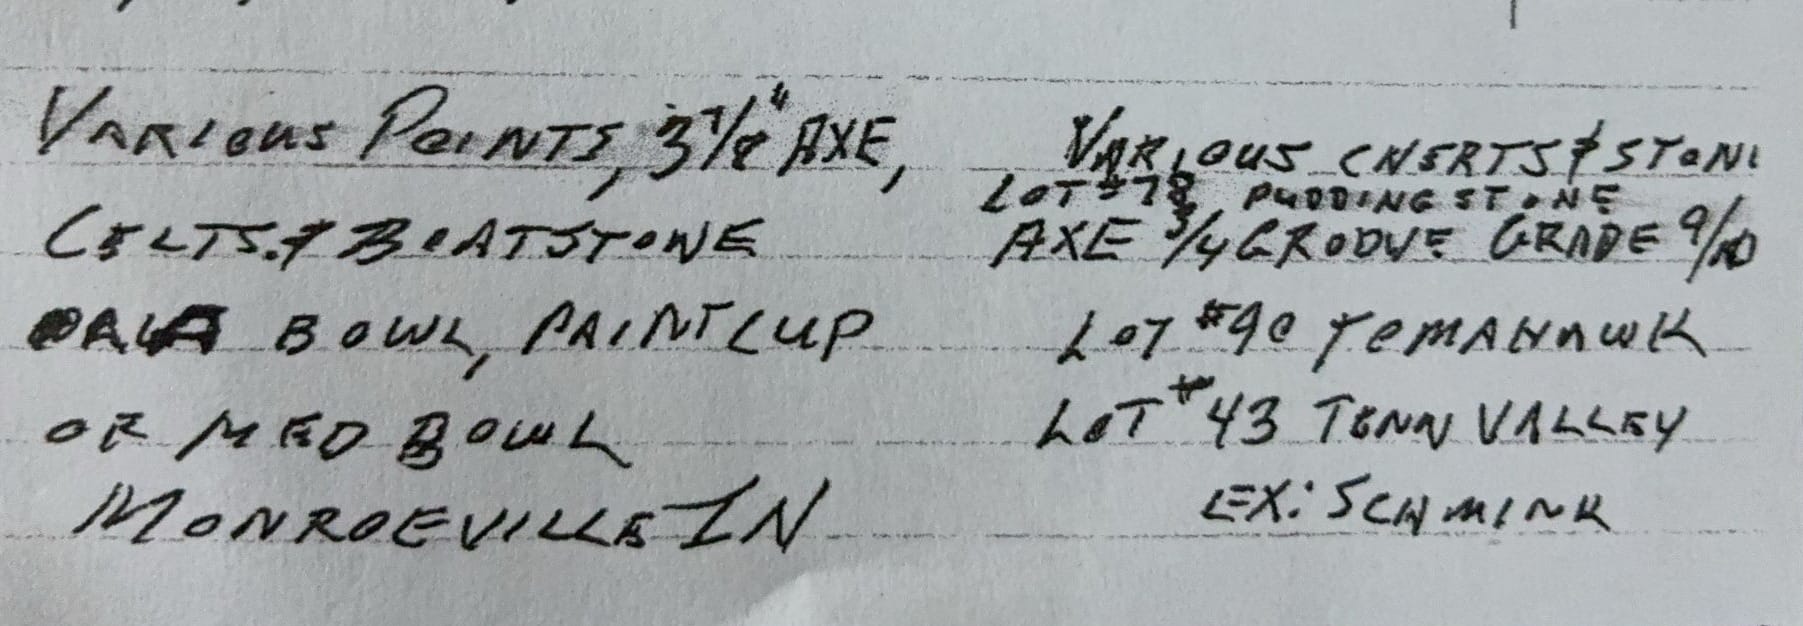 VARIOUS POINTS, 3 7/8" AXE,
CELTS. & BOATSTONE
BOWL, PAINT CUP
OR MED BOWL
MONROEVILLE IN
VARIOUS CHERTS & STONE
LOT #78 PUDDINGSTONE
AXE 3/4 GROOVE GRADE 9/10
LOT #90 TOMAHAWK
LOT #43 TENN VALLEY
EX: SCHMINK